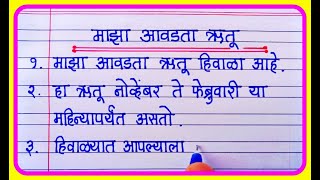 माझा आवडता ऋतू
१. माझा आवडता ऋतू हिवाळा आहे.
२. हा ऋतू नोव्हेंबर ते फेब्रुवारी या
महिन्यापर्यंत असतो.
३. हिवाळ्यात आपल्याला